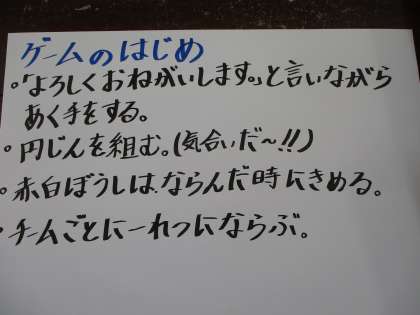 ゲームのはじめ
・「よろしくおねがいします。」と言いながら
あく手をする。
・円じんを組む。(気合いだ~!!)
・赤白ぼうしは、ならんだ時にきめる。
・チームごとに一れつにならぶ。